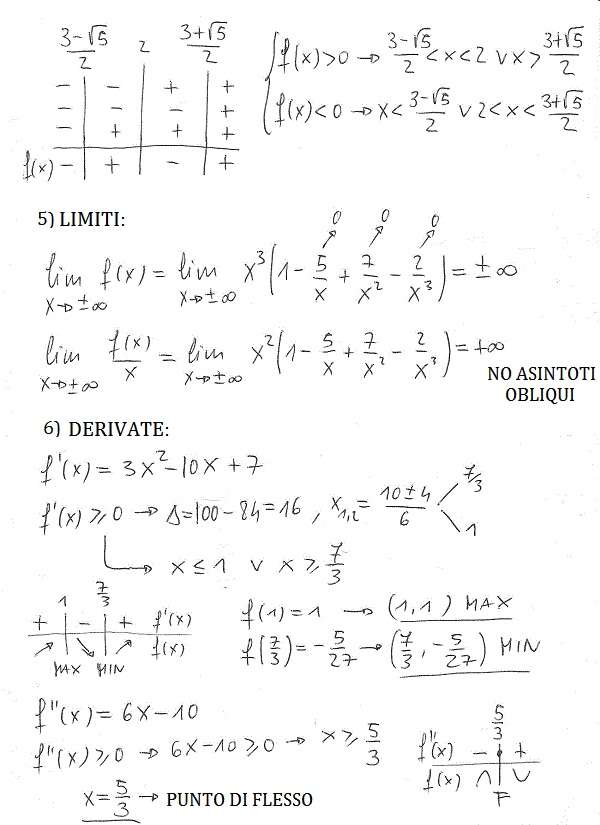 (3-√5)/2 2 (3+√5)/2
- - + +
- - - +
- + + +
f(x) - + - +
{ f(x)>0 → (3-√5)/2 < x < 2 ∨ x > (3+√5)/2
{ f(x)<0 → x < (3-√5)/2 ∨ 2 < x < (3+√5)/2
5) LIMITI:
0 0 0
lim x→±∞ f(x) = lim x→±∞ x³(1 - 5/x + 7/x² - 2/x³) = ±∞
lim x→±∞ f(x)/x = lim x→±∞ x²(1 - 5/x + 7/x² - 2/x³) = +∞
NO ASINTOTI
OBLIQUI
6) DERIVATE:
f'(x) = 3x² - 10x + 7
f'(x) ≥ 0 → Δ = 100 - 84 = 16 , x₁,₂ = (10±4)/6 7/3 1
→ x ≤ 1 ∨ x ≥ 7/3
1 7/3
+ - + f'(x)
↗ ↘ ↗ f(x)
MAX MIN
f(1) = 1 → (1,1) MAX
f(7/3) = -5/27 → (7/3, -5/27) MIN
f''(x) = 6x - 10
f''(x) ≥ 0 → 6x - 10 ≥ 0 → x ≥ 5/3
x = 5/3 → PUNTO DI FLESSO
5/3
f''(x) - +
f(x) ∩ ∪
F